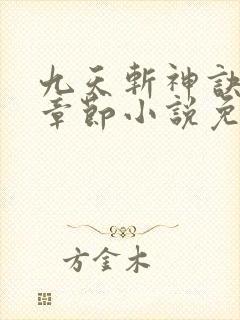 九天斩神訣
章節小說免
方金木